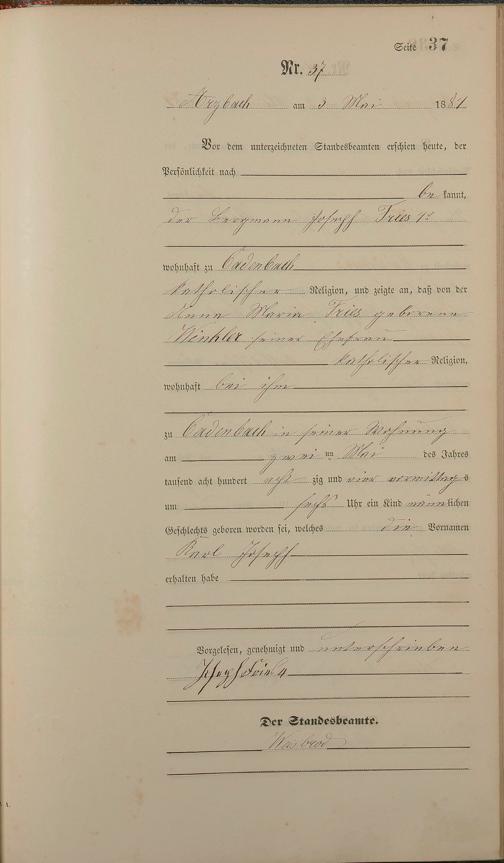 Seite 37
Nr. 37
Arzbach am 3 Mai 1881
Vor dem unterzeichneten Standesbeamten erschien heute, der
Persönlichkeit nach
be kannt,
der Bergmann Joseph Fries 1r
wohnhaft zu Cadenbach
katholischer Religion, und zeigte an, daß von der
Anna Maria Fries geborene
Winkler seiner Ehefrau
katholischer Religion,
wohnhaft bei ihm
zu Cadenbach in seiner Wohnung
am zwei ten Mai des Jahres
tausend acht hundert acht zig und vormittags
um sechs Uhr ein Kind männlichen
Geschlechts geboren worden sei, welches die Vornamen
Karl Joseph
erhalten habe
Vorgelesen, genehmigt und unterschrieben
Joseph Fries
Der Standesbeamte.